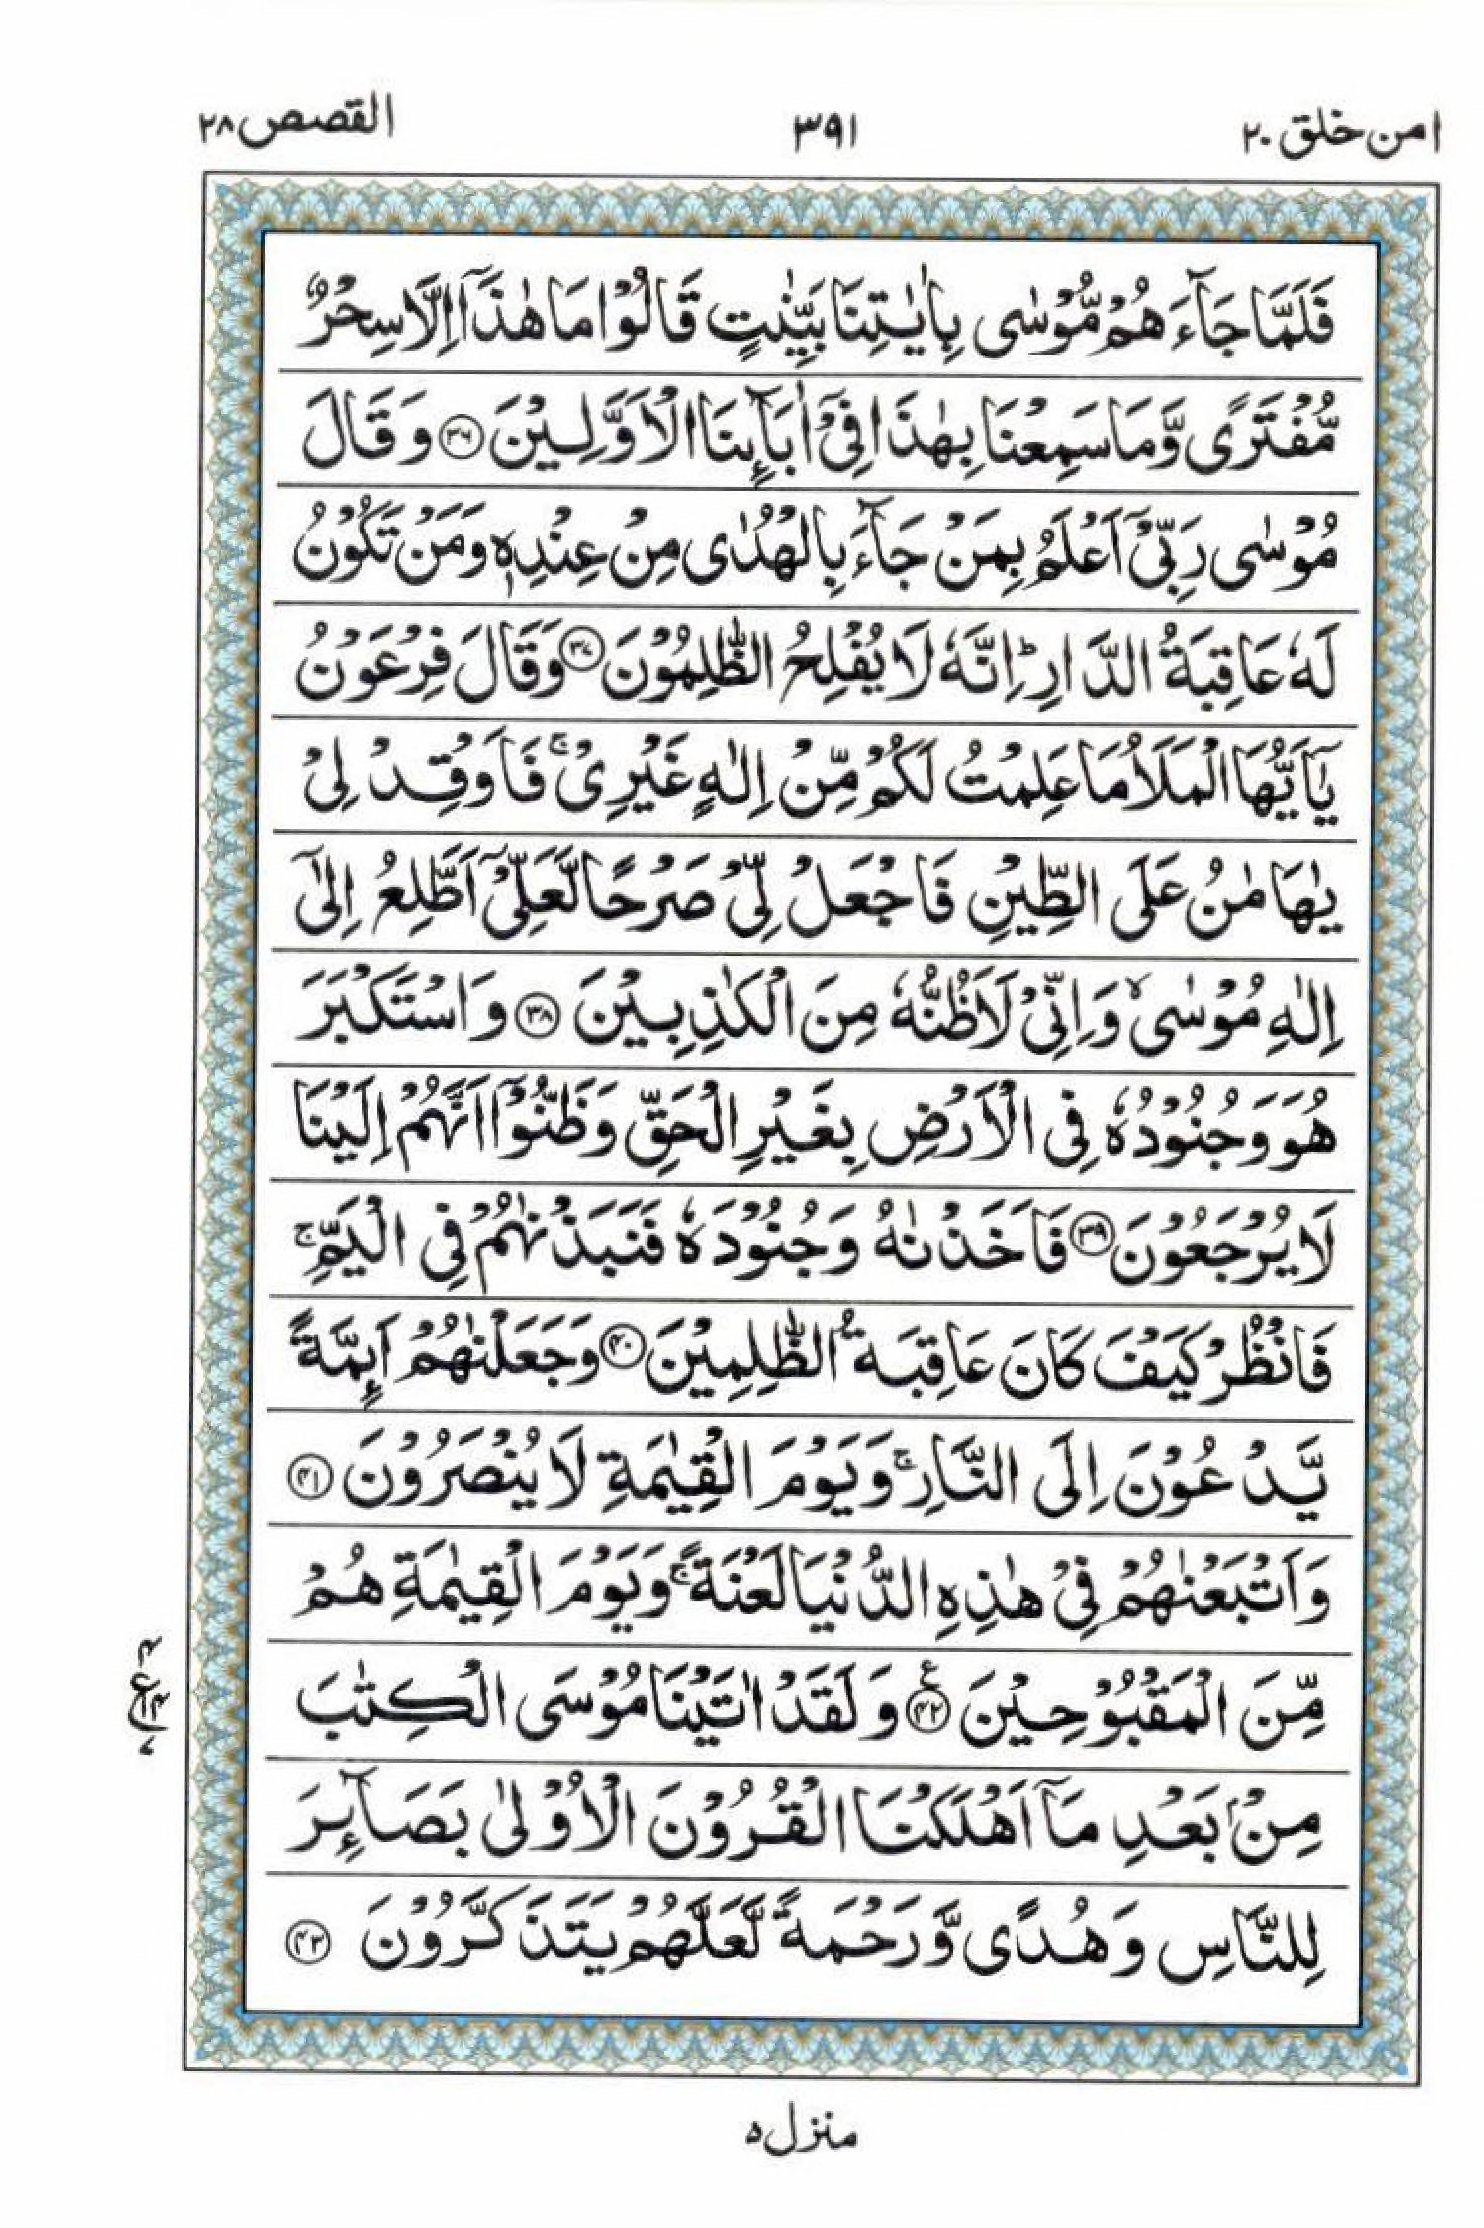 امن خلق ٢٠
٣٩١
القصص ٢٨
فَلَمَّا جَآءَهُمْ مُّوْسٰى بِاٰيٰتِنَا بَيِّنٰتٍ قَالُوْا مَا هٰذَاۤ اِلَّا سِحْرٌ
مُّفْتَرًى وَّمَا سَمِعْنَا بِهٰذَا فِيْۤ اٰبَآئِنَا الْاَوَّلِيْنَ ﴿٣٦﴾ وَقَالَ
مُوْسٰى رَبِّيْۤ اَعْلَمُ بِمَنْ جَآءَ بِالْهُدٰى مِنْ عِنْدِهٖ وَمَنْ تَكُوْنُ
لَهٗ عَاقِبَةُ الدَّارِ ؕ اِنَّهٗ لَا يُفْلِحُ الظّٰلِمُوْنَ ﴿٣٧﴾ وَقَالَ فِرْعَوْنُ
يٰۤاَيُّهَا الْمَلَاُ مَا عَلِمْتُ لَكُمْ مِّنْ اِلٰهٍ غَيْرِيْ ۚ فَاَوْقِدْ لِيْ
يٰهَامٰنُ عَلَى الطِّيْنِ فَاجْعَلْ لِّيْ صَرْحًا لَّعَلِّيْۤ اَطَّلِعُ اِلٰۤى
اِلٰهِ مُوْسٰى ۙ وَاِنِّيْ لَاَظُنُّهٗ مِنَ الْكٰذِبِيْنَ ﴿٣٨﴾ وَاسْتَكْبَرَ
هُوَ وَجُنُوْدُهٗ فِى الْاَرْضِ بِغَيْرِ الْحَقِّ وَظَنُّوْۤا اَنَّهُمْ اِلَيْنَا
لَا يُرْجَعُوْنَ ﴿٣٩﴾ فَاَخَذْنٰهُ وَجُنُوْدَهٗ فَنَبَذْنٰهُمْ فِى الْيَمِّ ۚ
فَانْظُرْ كَيْفَ كَانَ عَاقِبَةُ الظّٰلِمِيْنَ ﴿٤٠﴾ وَجَعَلْنٰهُمْ اَئِمَّةً
يَّدْعُوْنَ اِلَى النَّارِ ۚ وَيَوْمَ الْقِيٰمَةِ لَا يُنْصَرُوْنَ ﴿٤١﴾
وَاَتْبَعْنٰهُمْ فِيْ هٰذِهِ الدُّنْيَا لَعْنَةً ۚ وَيَوْمَ الْقِيٰمَةِ هُمْ
مِّنَ الْمَقْبُوْحِيْنَ ﴿٤٢﴾ ع وَلَقَدْ اٰتَيْنَا مُوْسَى الْكِتٰبَ
مِنْۢ بَعْدِ مَاۤ اَهْلَكْنَا الْقُرُوْنَ الْاُوْلٰى بَصَآئِرَ
لِلنَّاسِ وَهُدًى وَّرَحْمَةً لَّعَلَّهُمْ يَتَذَكَّرُوْنَ ﴿٤٣﴾
منزل ٥